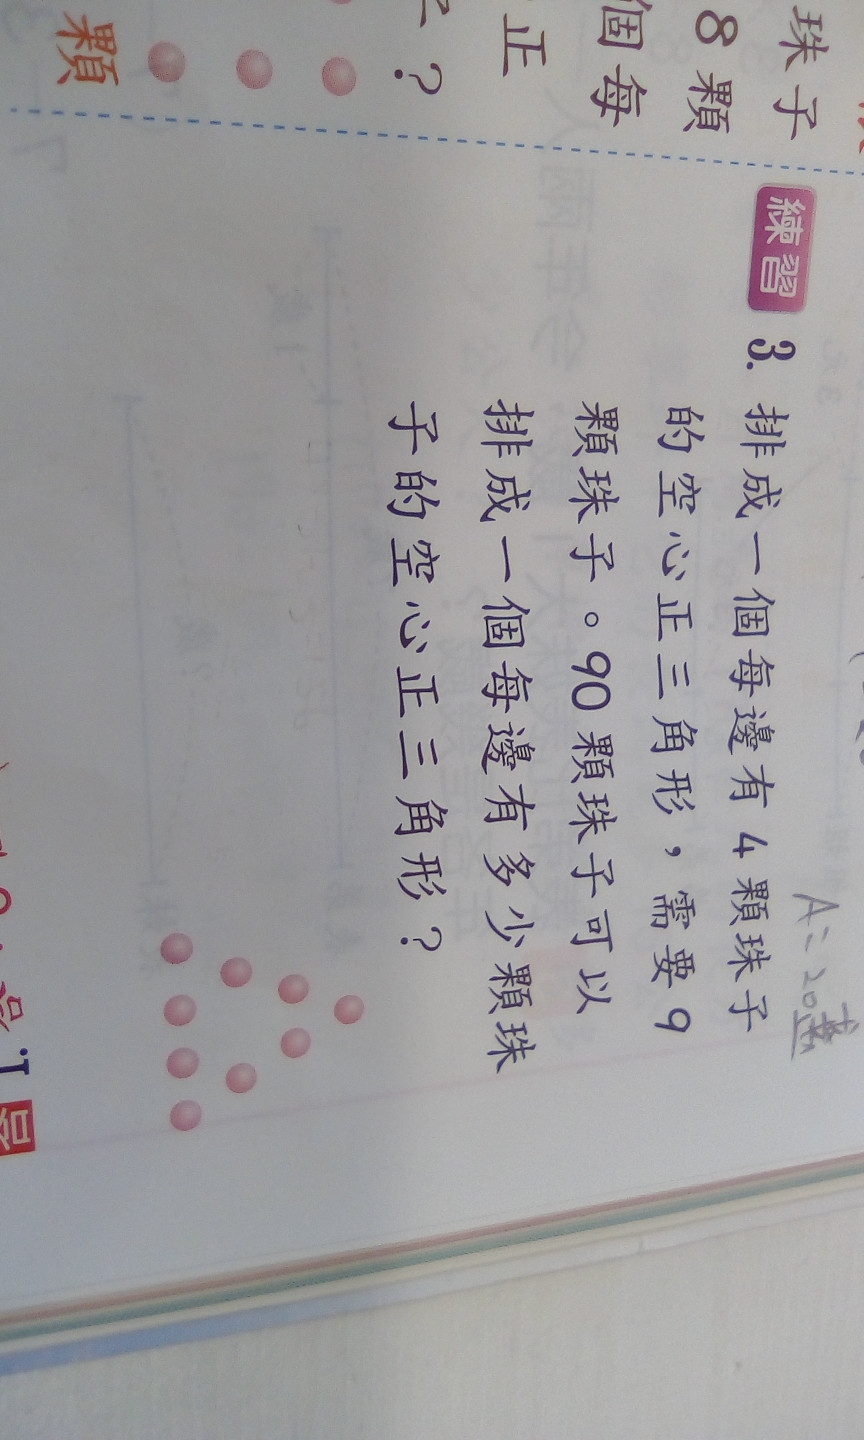 珠子
8顆
個每
正
？
顆
練習 3. 排成一個每邊有4顆珠子
的空心正三角形，需要9
顆珠子。90顆珠子可以
排成一個每邊有多少顆珠
子的空心正三角形？
A=20